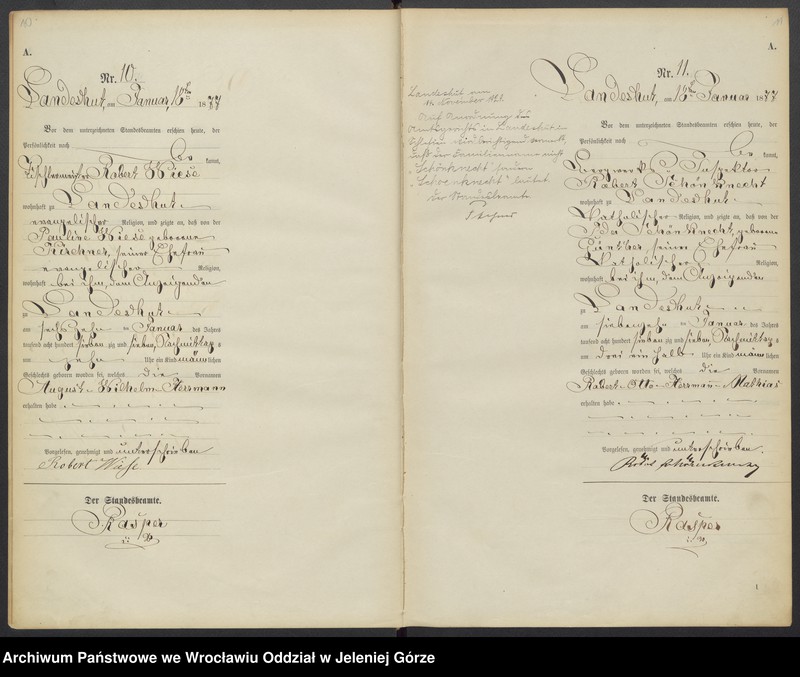 A.
Nr. 10.
Landeshut, am Januar, 16ten 1877
Vor dem unterzeichneten Standesbeamten erschien heute, der
Persönlichkeit nach
kannt,
Tischlermeister Robert Wiese
wohnhaft zu Landeshut
evangelischer Religion, und zeigte an, daß von der
Pauline Wiese geborenen
Kirschner, seiner Ehefrau
evangelischer Religion,
wohnhaft bei ihm, dem Anzeigenden
zu Landeshut
am sechszehn ten Januar des Jahres
tausend acht hundert sieben zig und sieben, Nachmittags
um zehn Uhr ein Kind männlichen
Geschlechts geboren worden sei, welches die Vornamen
August Wilhelm Herrmann
erhalten habe
Vorgelesen, genehmigt und unterschrieben
Robert Wiese
Der Standesbeamte.
Kasper
Landeshut am
11. November 1893
Auf Anordnung des
Amtsgerichts in Landeshut in
Schlesien wird berichtigend vermerkt,
daß der Familienname nicht
„Schönknecht“ sondern
„Schoenknecht“ lautet.
Der Standesbeamte
A.
Nr. 11.
Landeshut, am 18ten Januar 1877
Vor dem unterzeichneten Standesbeamten erschien heute, der
Persönlichkeit nach
kannt,
Bergwerks-Inspektor
Robert Schönknecht
wohnhaft zu Landeshut
katholischer Religion, und zeigte an, daß von der
Ida Schönknecht, geborenen
Günther, seiner Ehefrau
katholischer Religion,
wohnhaft bei ihm, dem Anzeigenden
zu Landeshut
am siebenzehn ten Januar des Jahres
tausend acht hundert sieben zig und sieben, Nachmittags
um drei ein halb Uhr ein Kind männlichen
Geschlechts geboren worden sei, welches die Vornamen
Robert Otto Herrmann Mathias
erhalten habe
Vorgelesen, genehmigt und unterschrieben.
Der Standesbeamte.
Kasper
Archiwum Państwowe we Wrocławiu Oddział w Jeleniej Górze